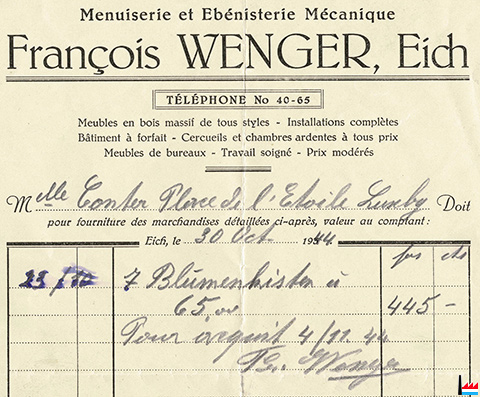 Menuiserie et Ebénisterie Mécanique
François WENGER, Eich
TÉLÉPHONE No 40-65
Meubles en bois massif de tous styles - Installations complètes
Bâtiment à forfait - Cercueils et chambres ardentes à tous prix
Meubles de bureaux - Travail soigné - Prix modérés
Melle Conter Place de l'Etoile Luxbg Doit
pour fourniture des marchandises détaillées ci-après, valeur au comptant :
Eich, le 30 Oct. 1944
frs cts
23 7 Blumenkisten à
65,00 445 -
Pour acquit 4/11.44
Fr. Wenger